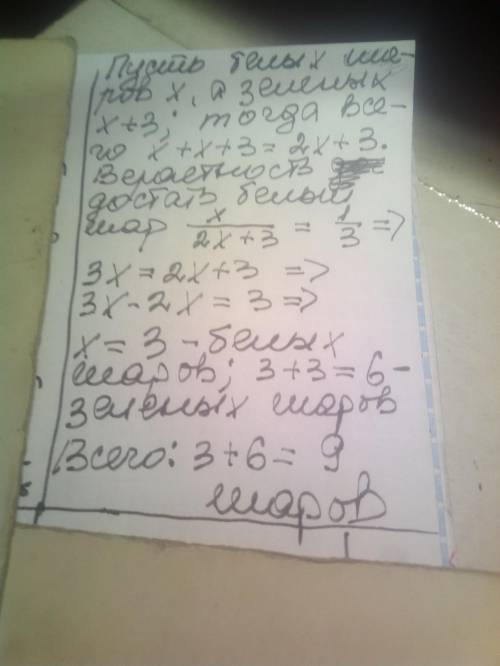 Пусть белых ша-
ров x, а зеленых
x+3; тогда все-
го x+x+3=2x+3.
Вероятность
достать белый
шар x/(2x+3) = 1/3 =>
3x=2x+3 =>
3x-2x=3=>
x=3-белых
шаров; 3+3=6-
зеленых шаров
Всего: 3+6= 9
шаров